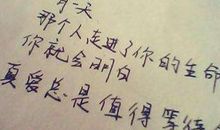 一天
那个人走进了你的生命
你就会明白
真爱总是值得等待